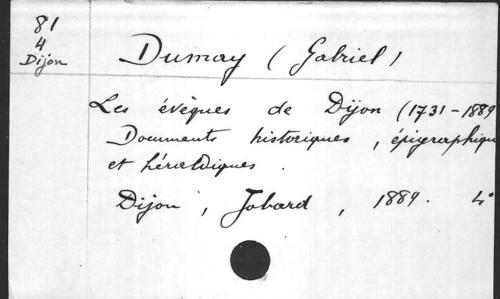 81
4
Dijon
Dumay (Gabriel)
Les évêques de Dijon (1731-1889
Documents historiques, épigraphiqu
et héraldiques.
Dijon, Jobard, 1889. 4°